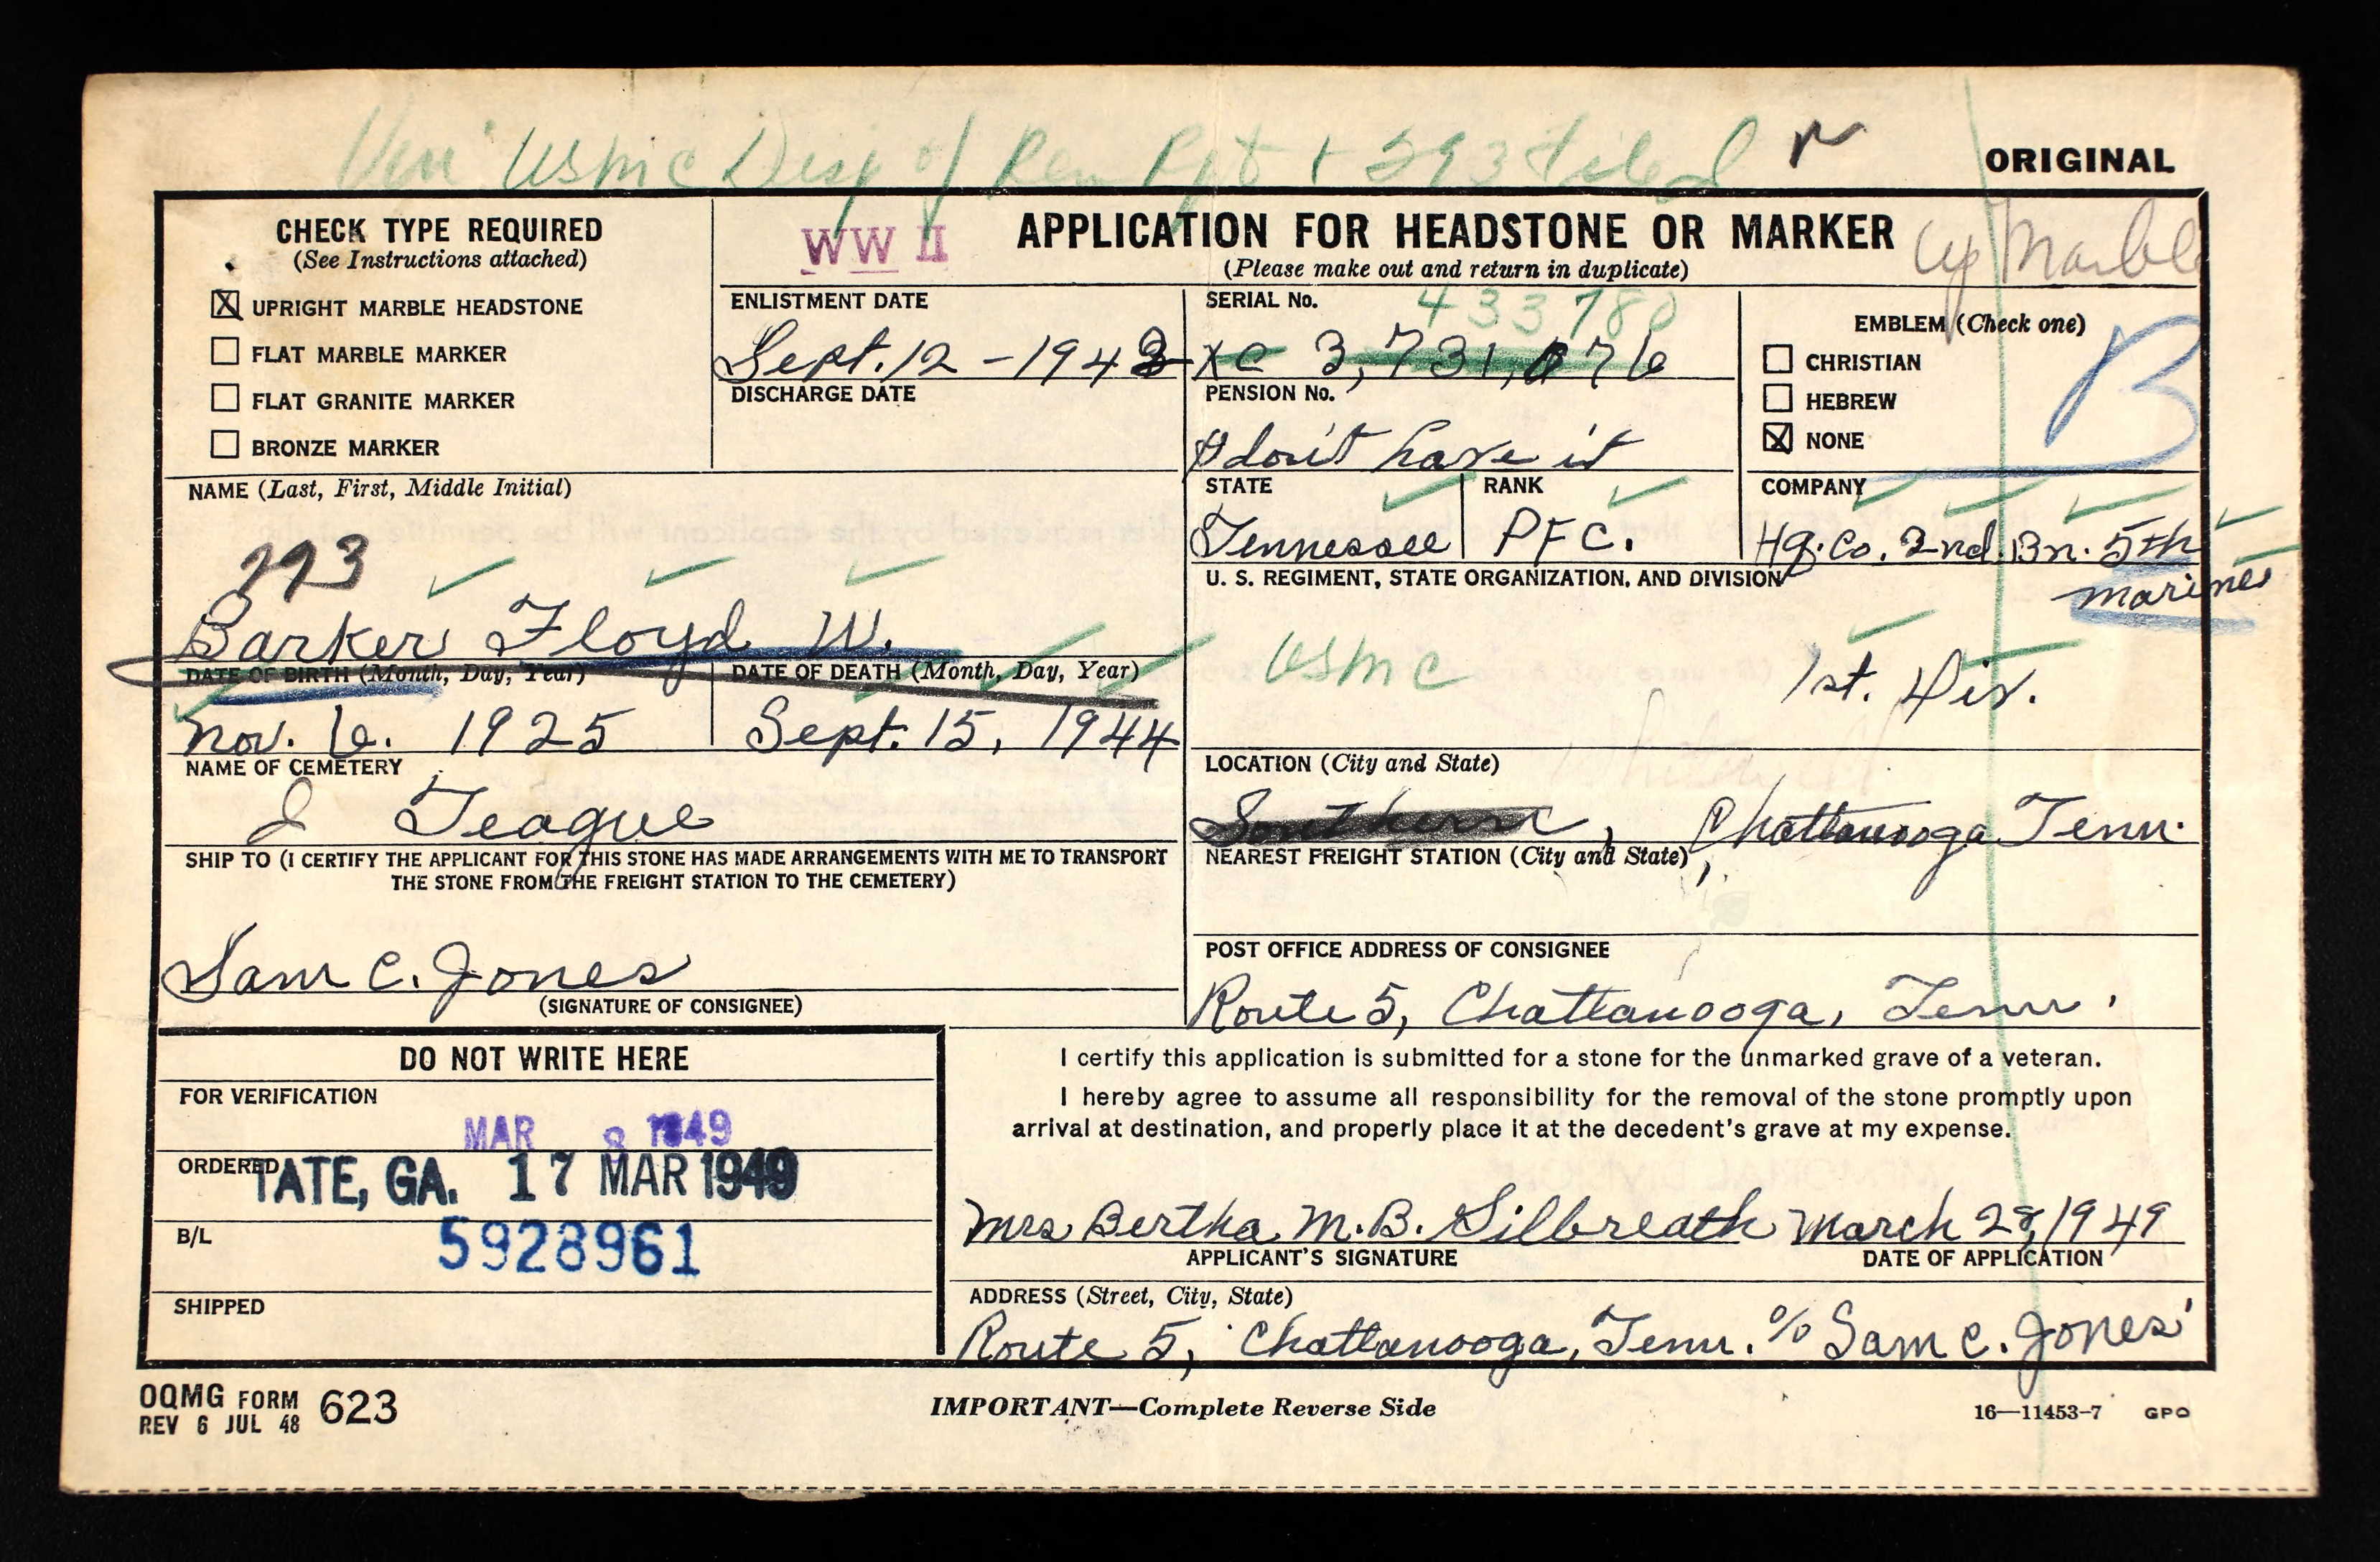 Veri USMC Disp of Rem Rpt + 293 filed
ORIGINAL
CHECK TYPE REQUIRED
(See Instructions attached)
X UPRIGHT MARBLE HEADSTONE
FLAT MARBLE MARKER
FLAT GRANITE MARKER
BRONZE MARKER
WW II
APPLICATION FOR HEADSTONE OR MARKER
(Please make out and return in duplicate)
Up Marble
ENLISTMENT DATE
Sept. 12 - 1943
DISCHARGE DATE
SERIAL No.
433780
XC 3,731,076
PENSION No.
I don't have it
EMBLEM (Check one)
CHRISTIAN
HEBREW
X NONE
B
NAME (Last, First, Middle Initial)
293
Barker Floyd W.
STATE
Tennessee
RANK
PFC.
COMPANY
Hq. Co. 2nd. Bn. 5th
marines
U. S. REGIMENT, STATE ORGANIZATION, AND DIVISION
USMC
1st. Div.
DATE OF BIRTH (Month, Day, Year)
Nov. 6. 1925
DATE OF DEATH (Month, Day, Year)
Sept. 15, 1944
NAME OF CEMETERY
J Teague
LOCATION (City and State)
Southern, Chattanooga Tenn.
SHIP TO (I CERTIFY THE APPLICANT FOR THIS STONE HAS MADE ARRANGEMENTS WITH ME TO TRANSPORT
THE STONE FROM THE FREIGHT STATION TO THE CEMETERY)
Sam C. Jones
(SIGNATURE OF CONSIGNEE)
NEAREST FREIGHT STATION (City and State)
POST OFFICE ADDRESS OF CONSIGNEE
Route 5, Chattanooga, Tenn.
DO NOT WRITE HERE
FOR VERIFICATION
MAR 8 1949
ORDERED
TATE, GA. 17 MAR 1949
B/L
5928961
SHIPPED
I certify this application is submitted for a stone for the unmarked grave of a veteran.
I hereby agree to assume all responsibility for the removal of the stone promptly upon
arrival at destination, and properly place it at the decedent's grave at my expense.
Mrs Bertha M. B. Gilbreath March 28, 1949
APPLICANT'S SIGNATURE
DATE OF APPLICATION
ADDRESS (Street, City, State)
Route 5, Chattanooga, Tenn. % Sam C. Jones
OQMG FORM 623
REV 6 JUL 48
IMPORTANT—Complete Reverse Side
16—11453-7 GPO